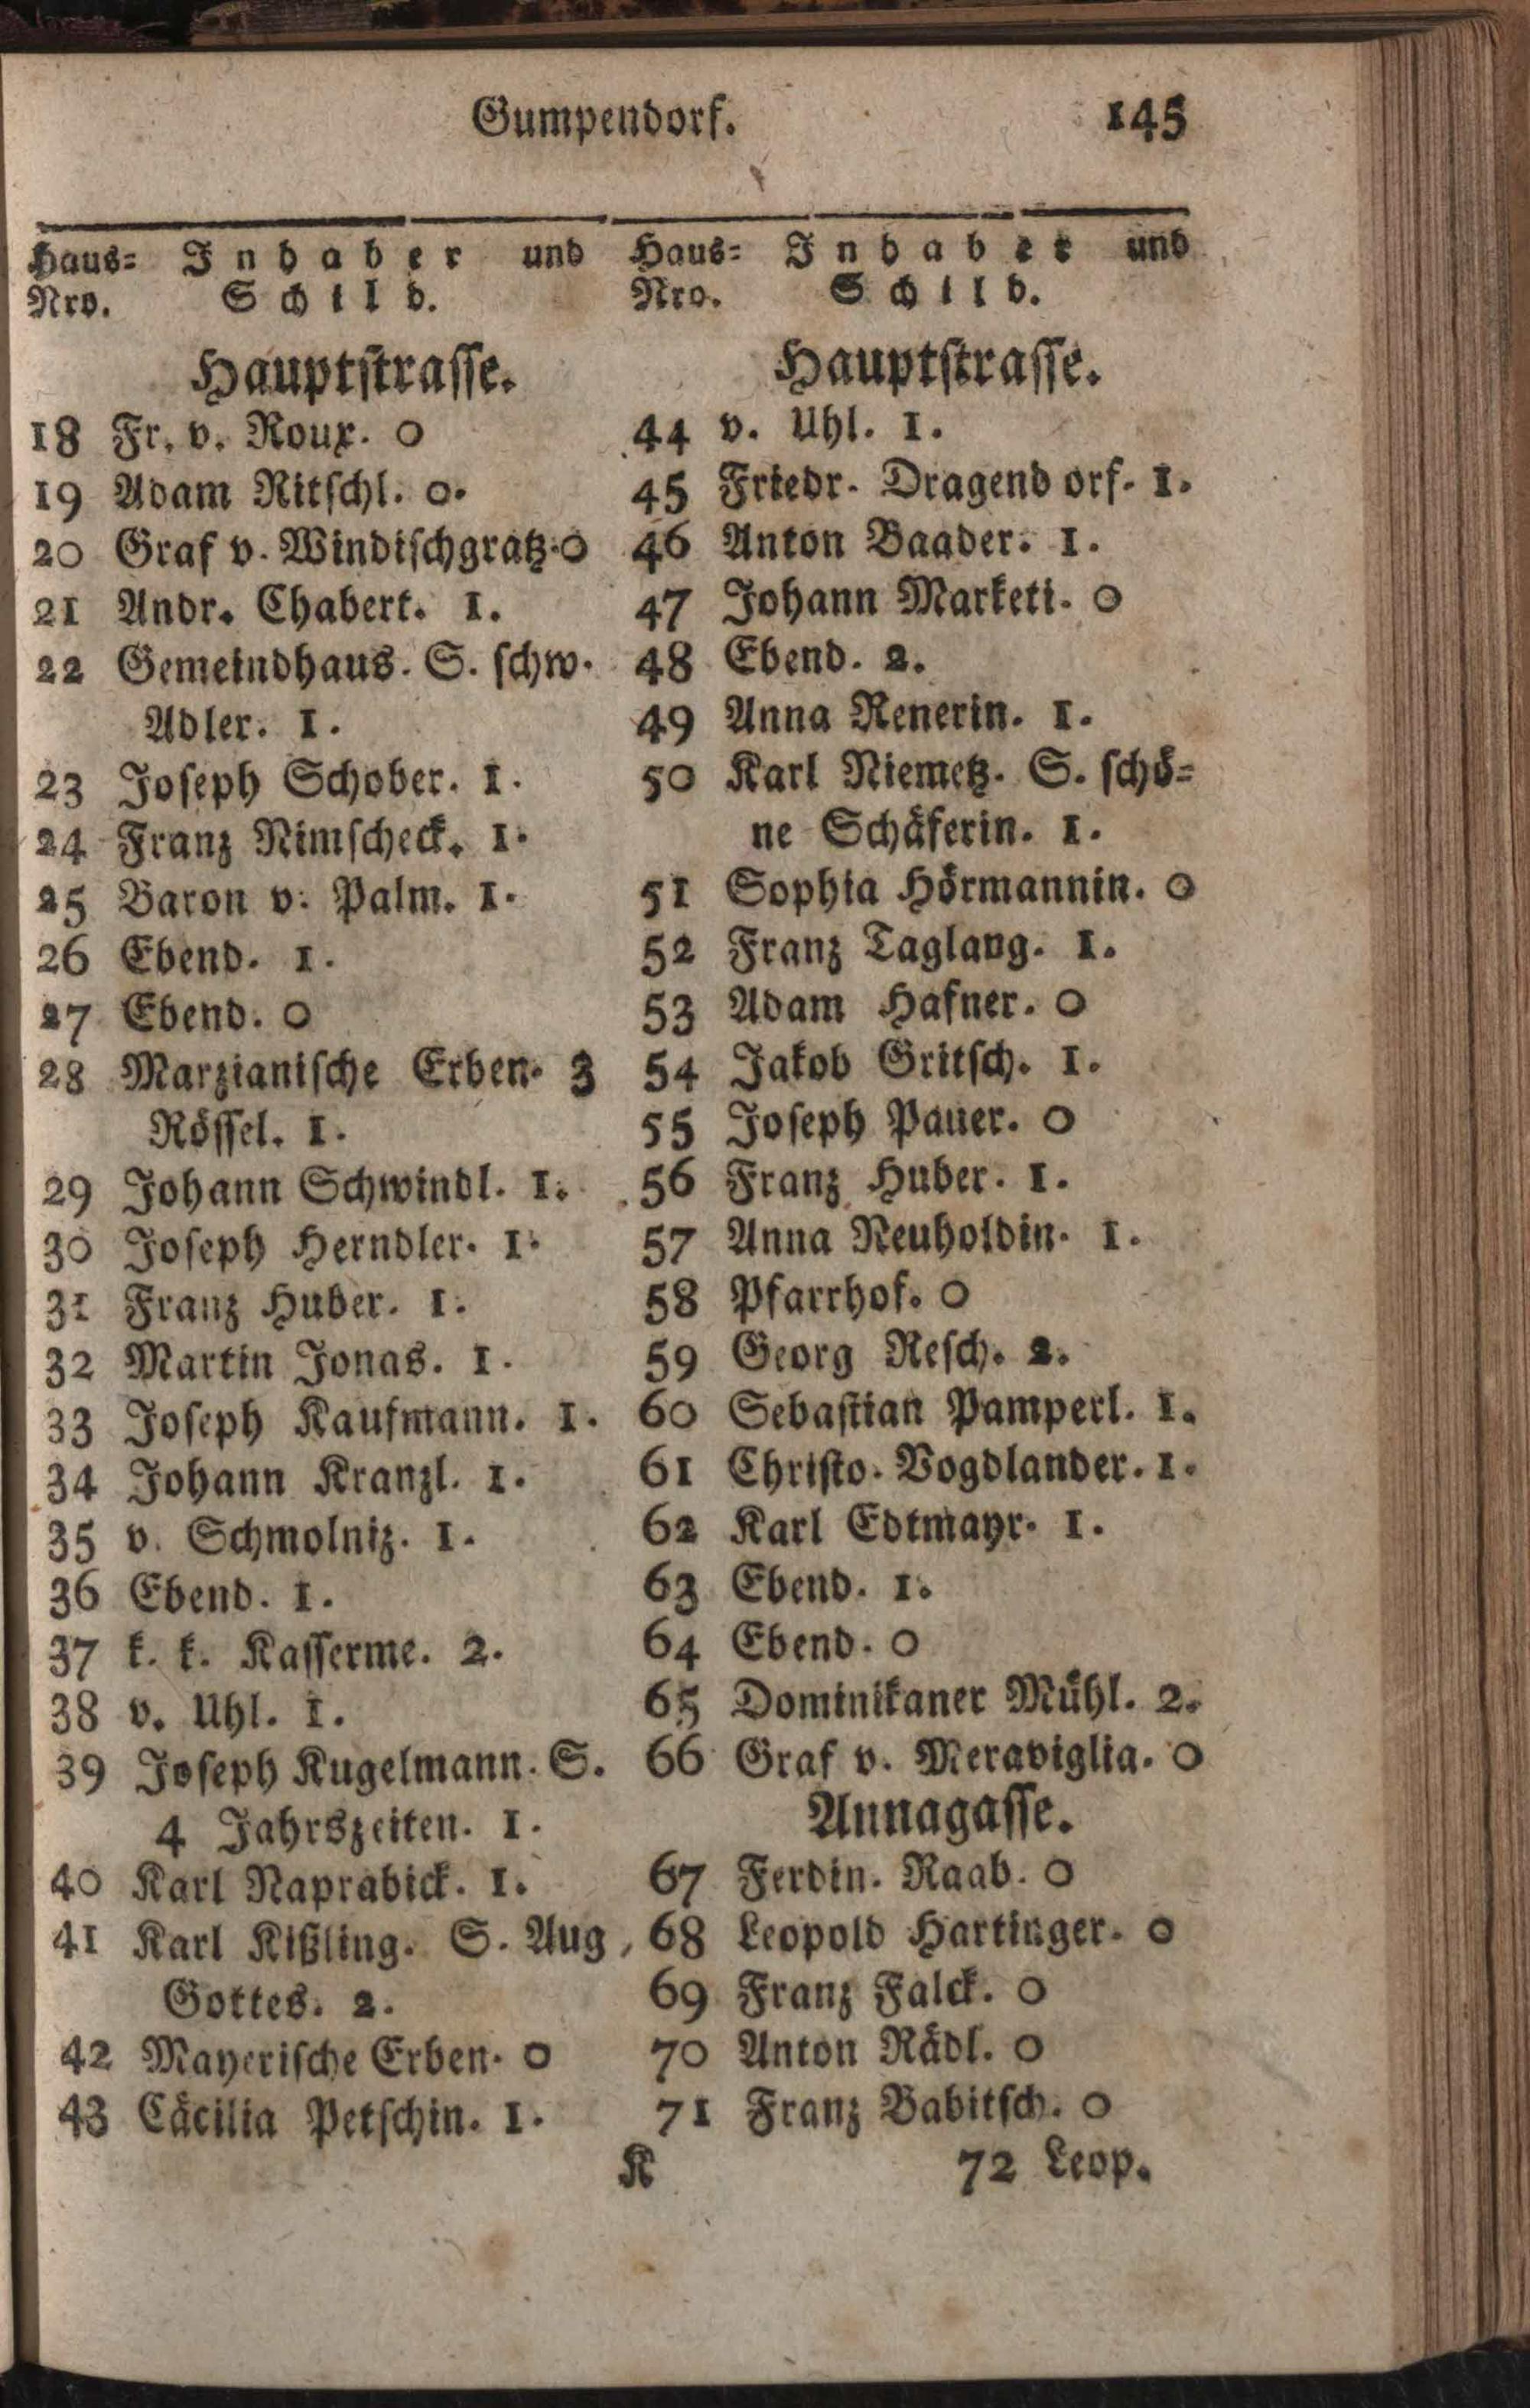 Gumpendorf. 145
Haus= Inhaber und
Nro. Schild.
Hauptstrasse.
18 Fr. v. Roux. o
19 Adam Ritschl. o.
20 Graf v. Windischgratz. o
21 Andr. Chabert. 1.
22 Gemeindhaus. S. schw.
Adler. 1.
23 Joseph Schober. 1.
24 Franz Nimscheck. 1.
25 Baron v. Palm. 1.
26 Ebend. 1.
27 Ebend. o
28 Marzianische Erben. 3
Rössel. 1.
29 Johann Schwindl. 1.
30 Joseph Herndler. 1.
31 Franz Huber. 1.
32 Martin Jonas. 1.
33 Joseph Kaufmann. 1.
34 Johann Kranzl. 1.
35 v. Schmolniz. 1.
36 Ebend. 1.
37 k. k. Kasserme. 2.
38 v. Uhl. 1.
39 Joseph Kugelmann. S.
4 Jahrszeiten. 1.
40 Karl Naprabick. 1.
41 Karl Kißling. S. Aug
Gottes. 2.
42 Mayerische Erben. o
43 Cäcilia Petschin. 1.
Haus= Inhaber und
Nro. Schild.
Hauptstrasse.
44 v. Uhl. 1.
45 Friedr. Dragend orf. 1.
46 Anton Baader. 1.
47 Johann Marketi. o
48 Ebend. 2.
49 Anna Renerin. 1.
50 Karl Niemetz. S. schö=
ne Schäferin. 1.
51 Sophia Hörmannin. o
52 Franz Taglang. 1.
53 Adam Hafner. o
54 Jakob Gritsch. 1.
55 Joseph Pauer. o
56 Franz Huber. 1.
57 Anna Neuholdin. 1.
58 Pfarrhof. o
59 Georg Resch. 2.
60 Sebastian Pamperl. 1.
61 Christo. Vogdlander. 1.
62 Karl Edtmayr. 1.
63 Ebend. 1.
64 Ebend. o
65 Dominikaner Mühl. 2.
66 Graf v. Meraviglia. o
Annagasse.
67 Ferdin. Raab. o
68 Leopold Hartinger. o
69 Franz Falck. o
70 Anton Rädl. o
71 Franz Babitsch. o
K 72 Leop.